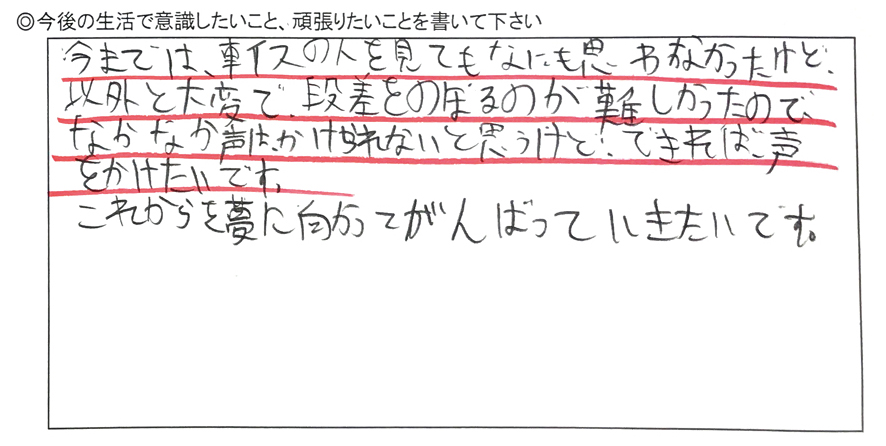 ◎今後の生活で意識したいこと、頑張りたいことを書いて下さい
今までは、車イスの人を見てもなにも思わなかったけど、
以外と大変で、段差をのぼるのが難しかったので、
なかなか声は、かけられないと思うけど、できれば声
をかけたいです。
これからを夢に向かってがんばっていきたいです。